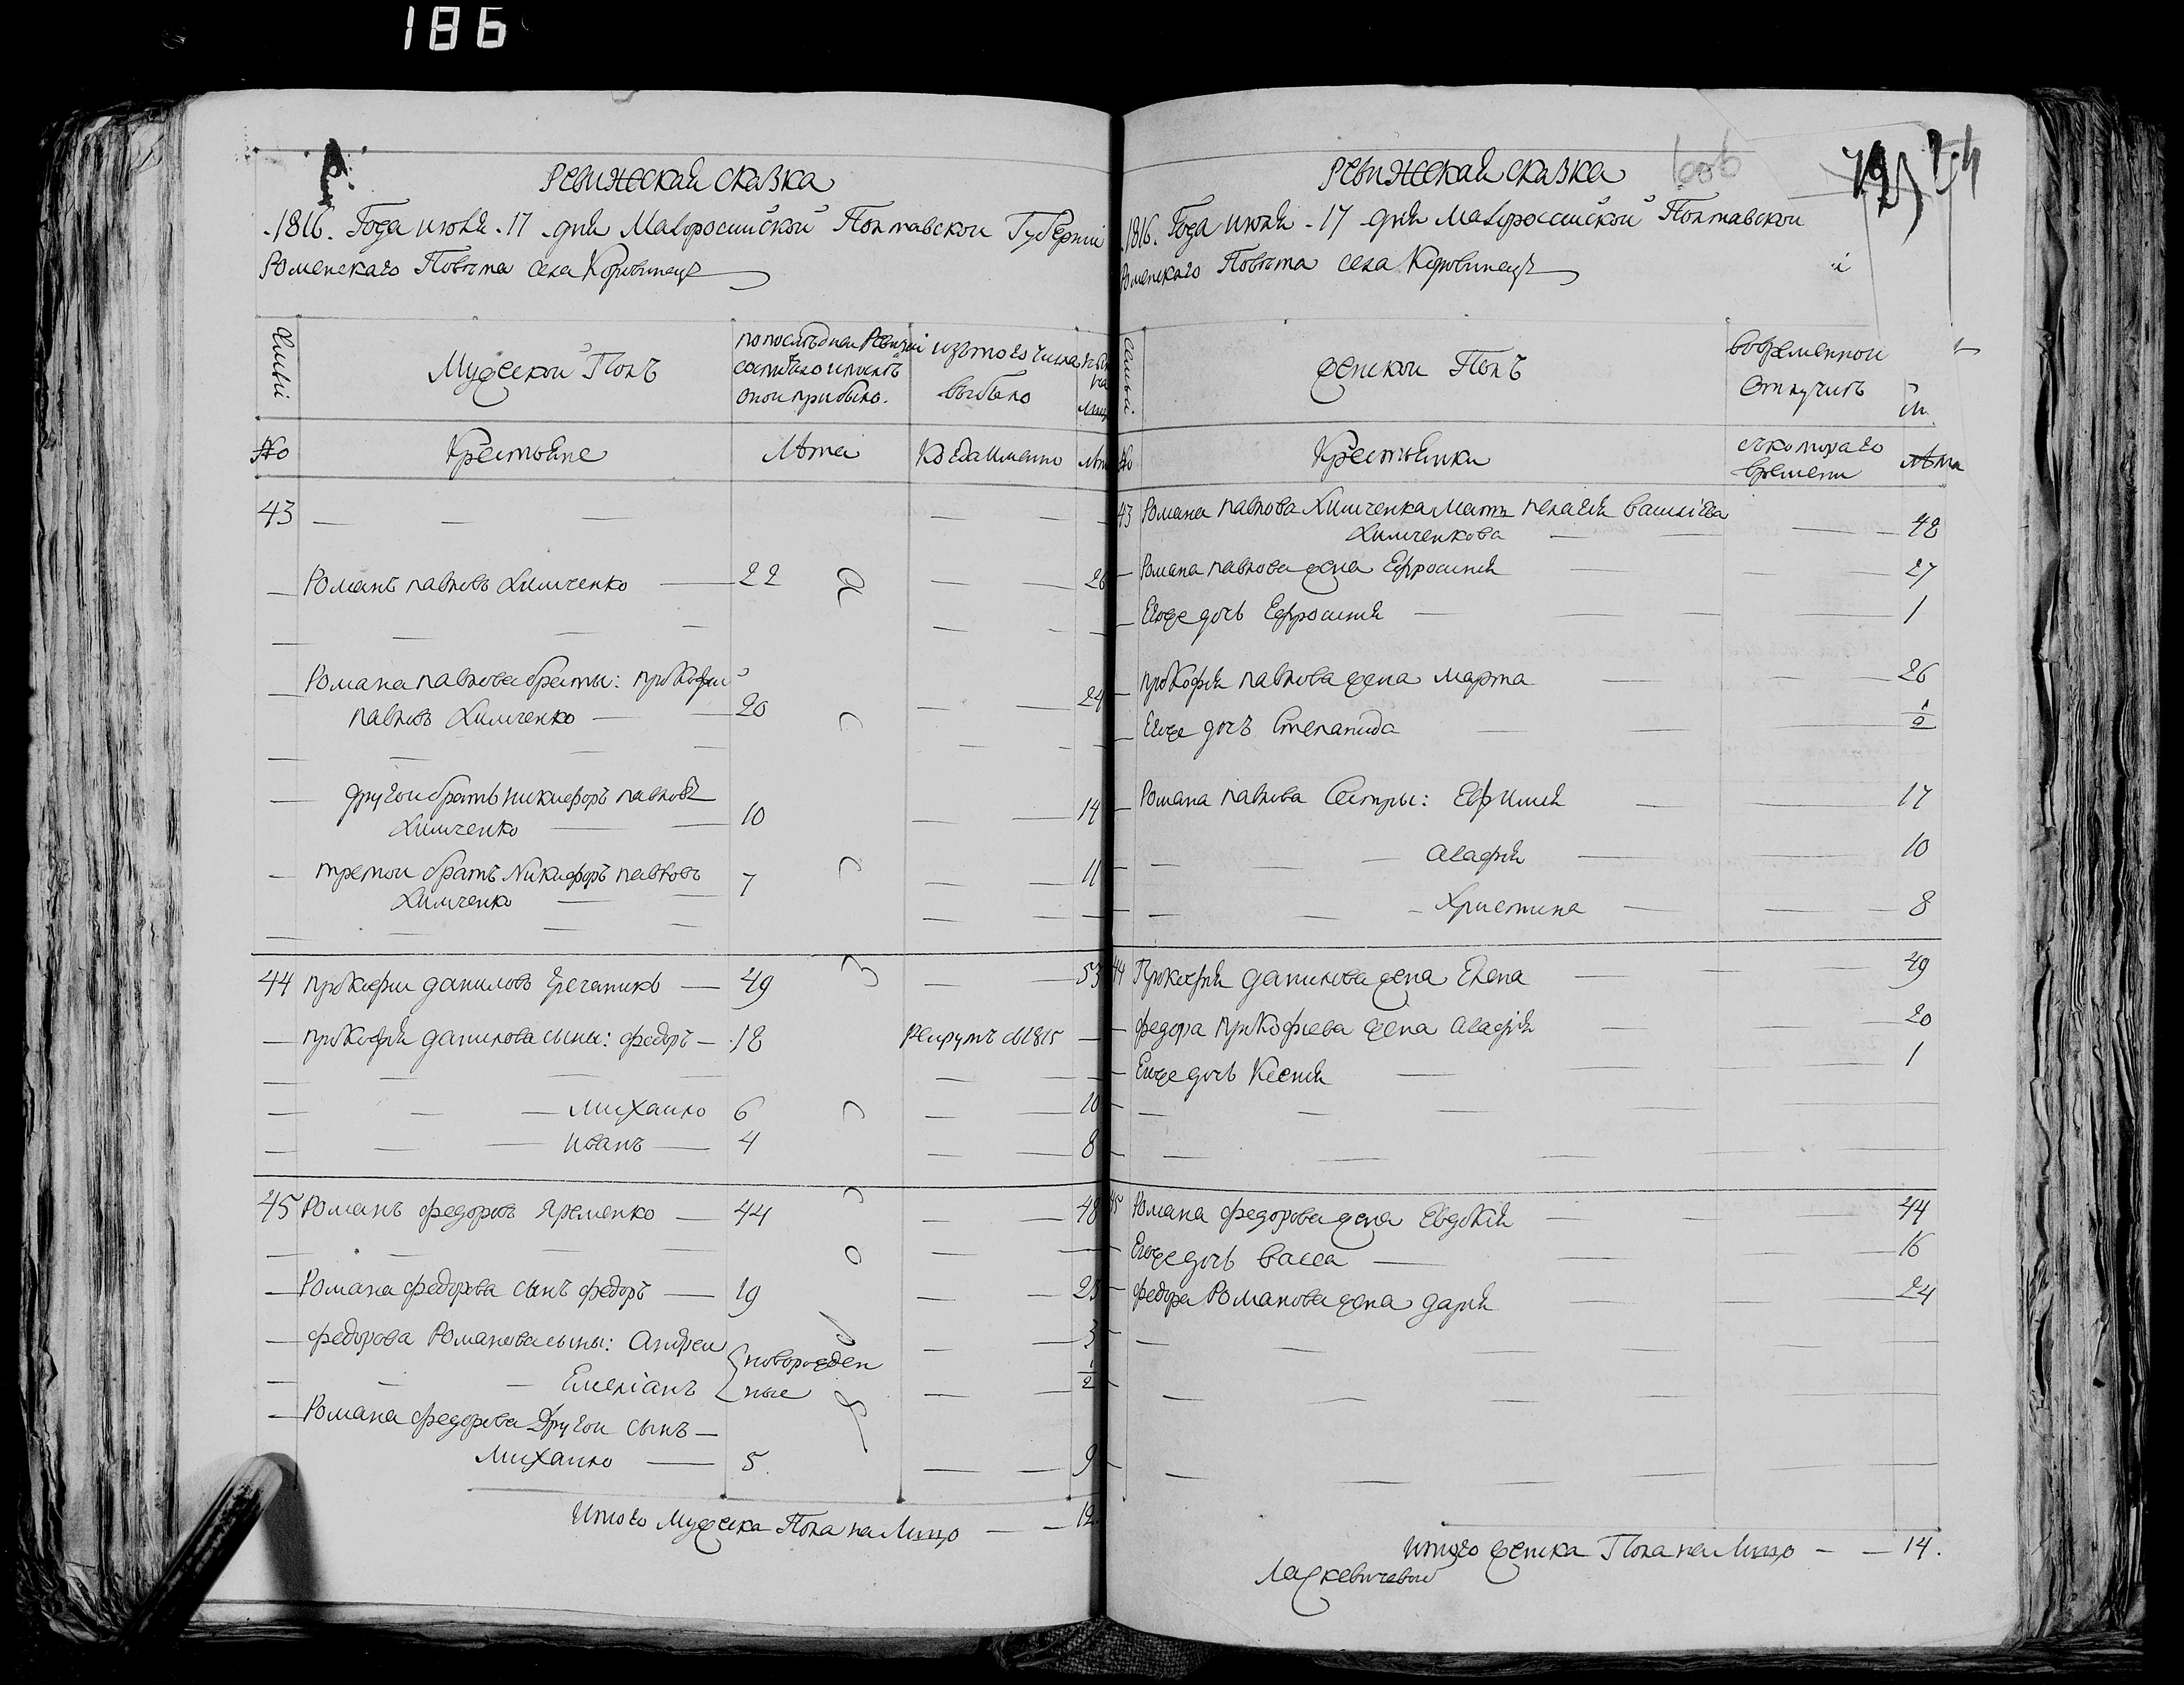 186
Ревижская сказка
1816. Года июня 17 дня Малоросийской Полтавской Губернии
Роменскаго Повѣта села Коровинецъ
Семьи
Мужескои Полъ
по последнеи Ревизии
состояло и после
оной прибыло.
изъ того числа
выбыло
ныне
на
лицо
№
Крестьяне
Лѣта
Когда именно
Лѣта
43 — — —
— Романъ павловъ Химченко — 22 — — 26
Романа павлова браты: прокофии
павловъ Химченко — 20 — — 24
— другои братъ никифоръ павловъ
Химченко — 10 — — 14
— третои братъ Никифоръ павловъ
Химченко — 7 — — 11
44 прокофии даниловъ Гречаникъ — 49 — — 53
— прокофия данилова сыны: федоръ — 18 рекрутъ въ 1815 —
— — — михаило 6 — — 10
— — — иванъ — 4 — — 8
45 Романъ федоровъ Яременко — 44 — — 48
— Романа федорова сынъ федоръ — 19 — — 23
— федорова Романова сыны: Андреи — — 3
новорожден
ные
— — — Емелианъ — — 1/2
— Романа федорова Другои сынъ —
Михаило — 5. — — 9
Итого Мужеска Пола на Лицо — — 12.
Ревижская сказка
606
1816. Года июня 17 дня Малоросийской Полтавской
Роменскаго Повѣта села Коровинецъ
Семьи.
женскои Полъ
во временнои
отлучкѣ
№
Крестьянки
съ котораго
времени
лѣта
43 Романа павлова Химченка мать пелагия василиева
Химченкова — — — 48
— Романа павлова жена Ефросиния — — 27
— Егоже дочь Ефросиния — — — 1
— прокофия павлова жена марта — — 26
— Егоже дочь Степанида — — 1/2
— Романа павлова Сестры: Ефимия — — 17
— — — агафия — — 10
— — — Христина — — 8
44 Прокофия данилова жена Елена — — 49
— федора прокофиева жена агафия — — 20
— Егоже дочь Ксения — — 1
45 Романа федорова жена Евдокия — — 44
— Егоже дочь васса — — 16
— федора Романова жена дария — — 24
итого женска Пола на Лицо — — 14.